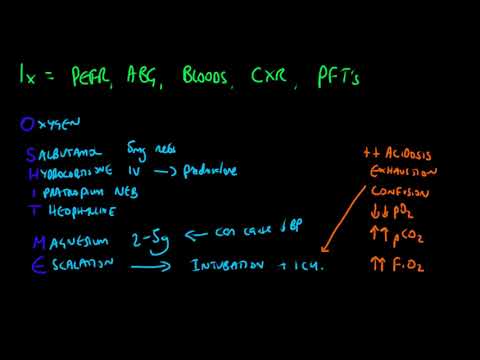 Ix = PEFR, ABG, BLOODS, CXR, PFT's
OXYGEN
SALBUTAMOL 5mg nebs
HYDROCORTISONE IV → prednisolone
IPRATROPIUM NEB
THEOPHYLLINE
MAGNESIUM 2-5g ← can cause ↓BP
ESCALATION → INTUBATION + ICU.
++ ACIDOSIS
EXHAUSTION
CONFUSION
↓↓ pO2
↑↑ pCO2
↑↑ FiO2